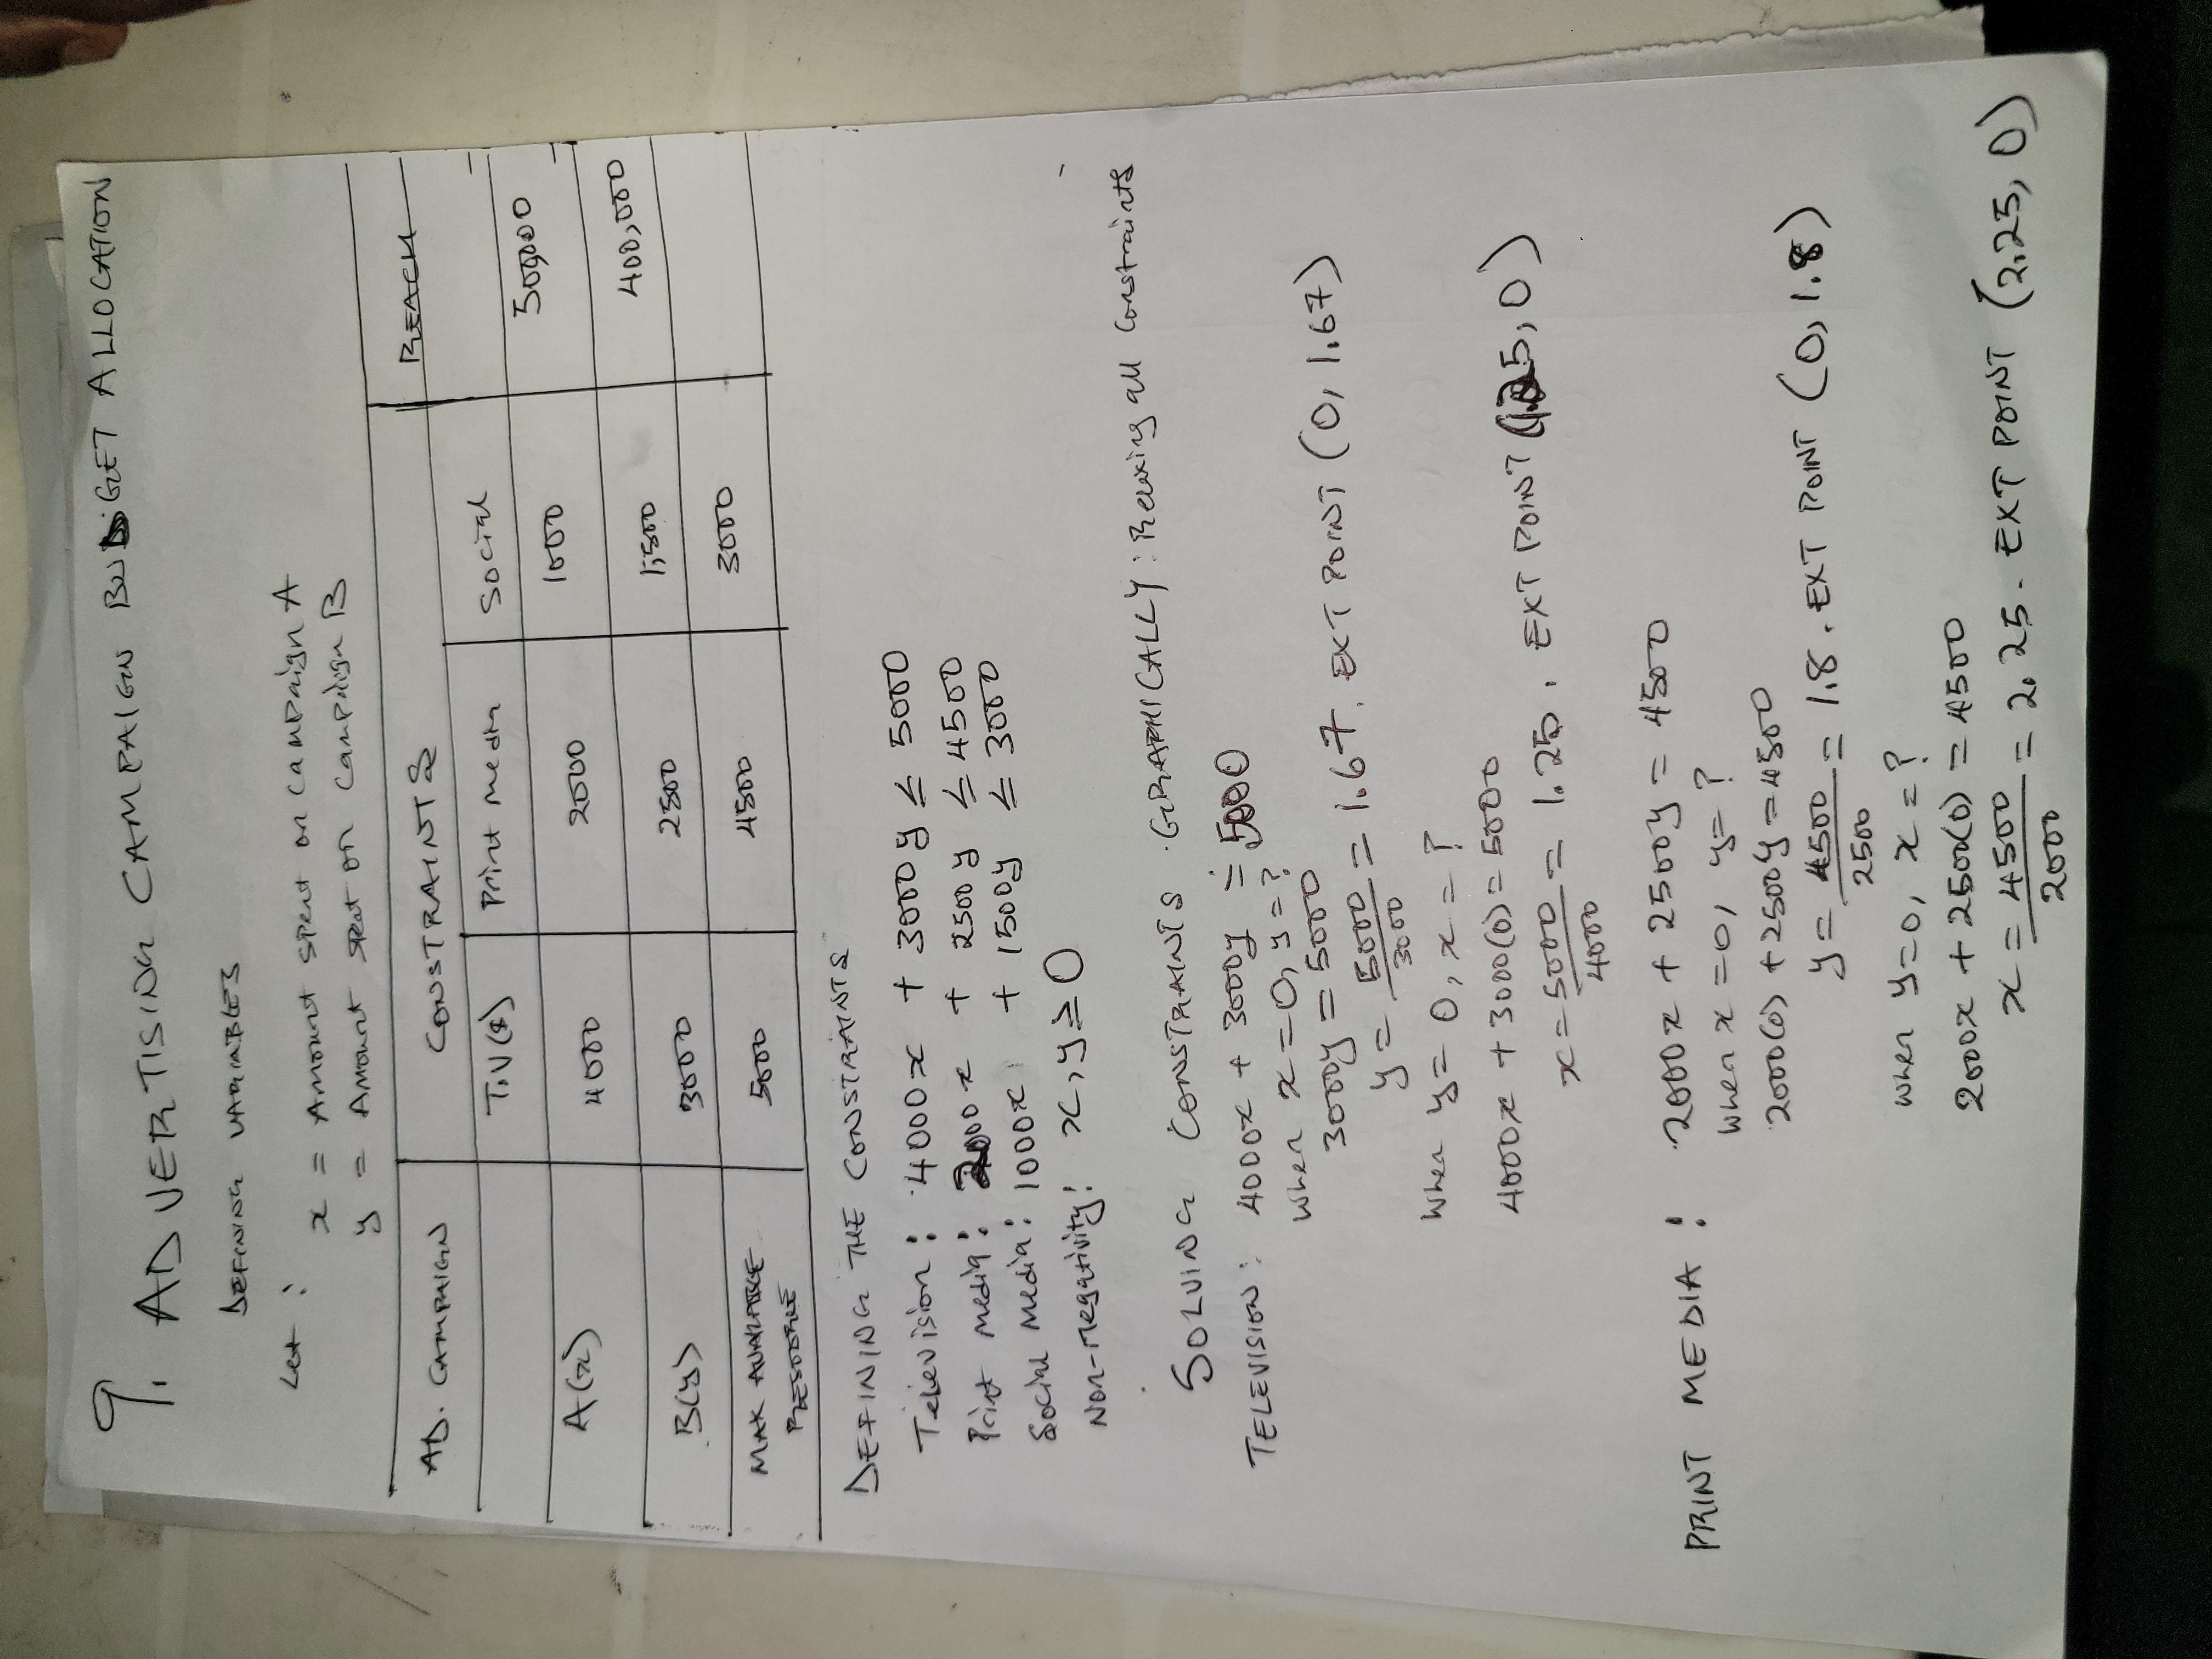 9. ADVERTISING CAMPAIGN BUDGET ALLOCATION
DEFINING VARIABLES
Let : x = Amount spent on campaign A
y = Amount spent on campaign B
AD. CAMPAIGN CONSTRAINTS REACH
T.V($) Print media Social
A(x) 4000 2000 1000 500,000
B(y) 3000 2500 1,500 400,000
MAX AVAILABLE RESOURCE 5000 4500 3000
DEFINING THE CONSTRAINTS
Television: 4000x + 3000y ≤ 5000
Print media: 2000x + 2500y ≤ 4500
Social media: 1000x + 1500y ≤ 3000
Non-negativity: x,y ≥ 0
SOLVING CONSTRAINTS GRAPHICALLY: Relaxing all constraints
TELEVISION: 4000x + 3000y = 5000
when x = 0, y = ?
3000y = 5000
y = 5000/3000 = 1.67. EXT POINT (0, 1.67)
when y = 0, x = ?
4000x + 3000(0) = 5000
x = 5000/4000 = 1.25. EXT POINT (1.25, 0)
PRINT MEDIA: 2000x + 2500y = 4500
when x = 0, y = ?
2000(0) + 2500y = 4500
y = 4500/2500 = 1.8. EXT POINT (0, 1.8)
when y=0, x = ?
2000x + 2500(0) = 4500
x = 4500/2000 = 2.25. EXT POINT (2.25, 0)